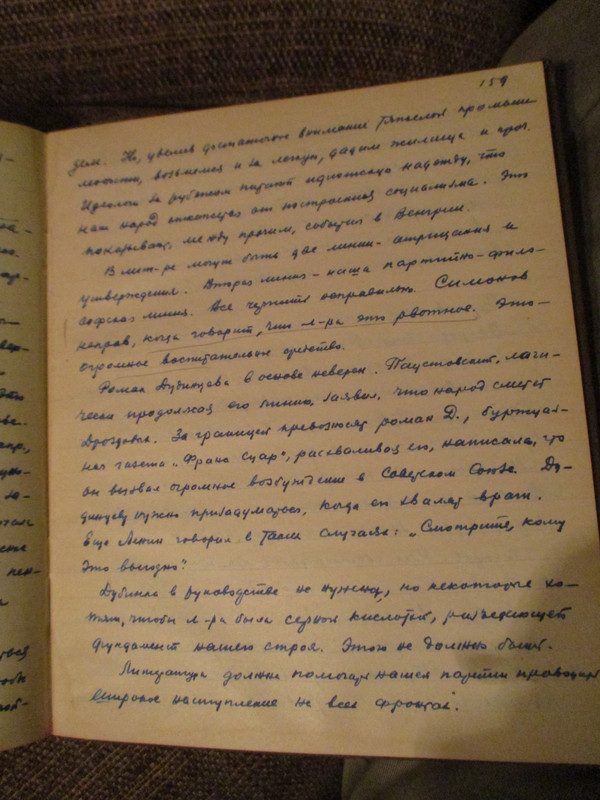 159
дем. Но, уделив достаточное внимание тяжелой промышл-
ленности, возьмемся и за легкую, дадим жилища и проч.
Идеологи за рубежом питают идиотскую надежду, что
наш народ откажется от построения социализма. Это
показывают, между прочим, события в Венгрии.
В лит-ре могут быть две линии - отрицания и
утверждения. Вторая линия - наша партийно-фило-
софская линия. Все чужите неправильно. Симонов
неправ, когда говорит, что л-ра это рвотное. Это -
огромное воспитательное средство.
Роман Дудинцева в основе неверен. Паустовский, логи-
чески продолжая его линию, заявил, что народ сметет
Дроздовых. За границей превозносят роман Д., буржуаз-
ная газета „Франс суар", расхваливая его, написала, что
он вызвал огромное возбуждение в Советском Союзе. Ду-
динцеву нужно призадуматься, когда его хвалят враги.
Еще Ленин говорил в таких случаях: „Смотрите, кому
это выгодно".
Дубинка в руководстве не нужна, но некоторые хо-
тят, чтобы л-ра была серной кислотой, разъедающей
фундамент нашего строя. Этого не должно быть.
Литература должна помогать нашей партии проводить
широкое наступление на всех фронтах".